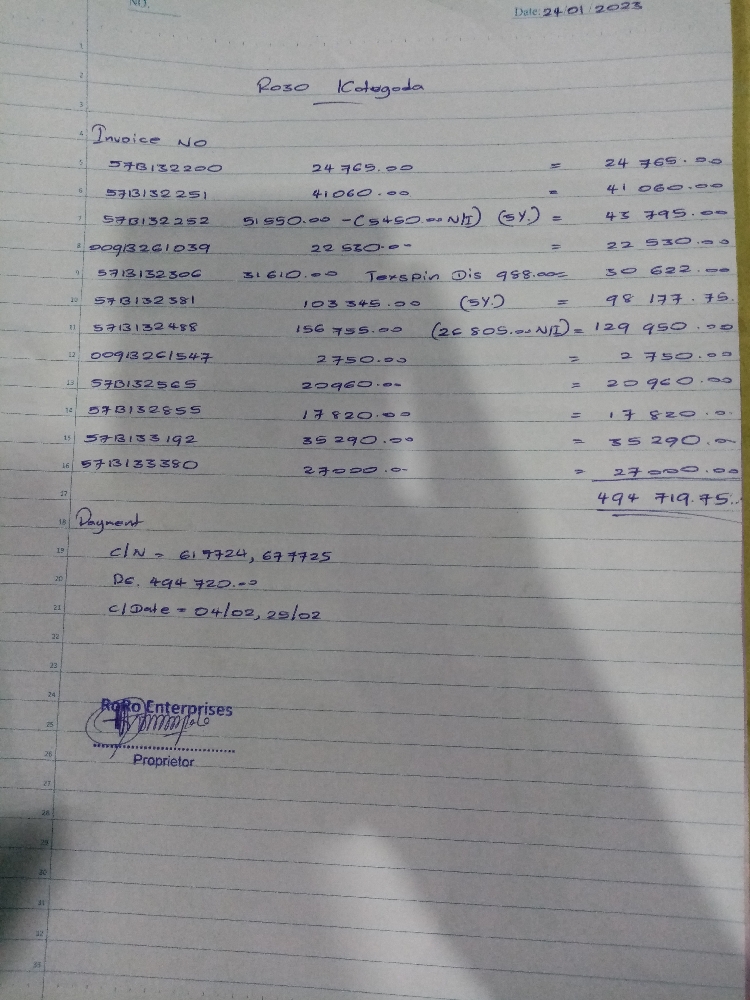 NO.
Date: 24/01/2023
Roso Kotogoda
Invoice No
57B132200 24 765.00 = 24 765.00
57B132251 41060.00 = 41 060.00
57B132252 51550.00 - (5450.00 N/I) (5%) = 43 795.00
00913261039 22 530.00 = 22 530.00
57B132306 31610.00 Texspin Dis 988.00 = 30 622.00
57B132381 103 345.00 (5%) = 98 177.75
57B132488 156 755.00 (26 805.00 N/I) = 129 950.00
00913261547 2750.00 = 2 750.00
57B132565 20960.00 = 20 960.00
57B132855 17820.00 = 17 820.0
57B133192 35290.00 = 35 290.00
57B133380 27000.00 = 27000.00
494 719.75
Payment
C/N = 619724, 677725
Dc. 494 720.00
C/Date = 04/02, 25/02
RoRo Enterprises
Proprietor
1
2
3
4
5
6
7
8
9
10
11
12
13
14
15
16
17
18
19
20
21
22
23
24
25
26
27
28
29
30
31
32
33